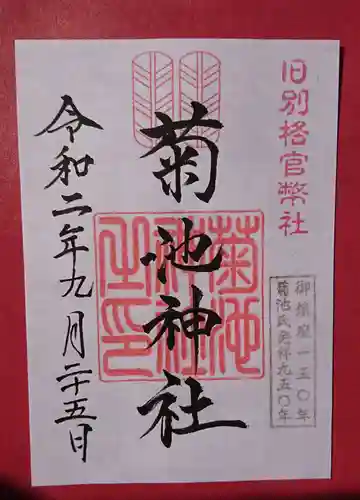 旧別格官幣社
御鎮座一五〇年
菊池氏発祥九五〇年
菊池神社
菊池神社之印
令和二年九月二十五日